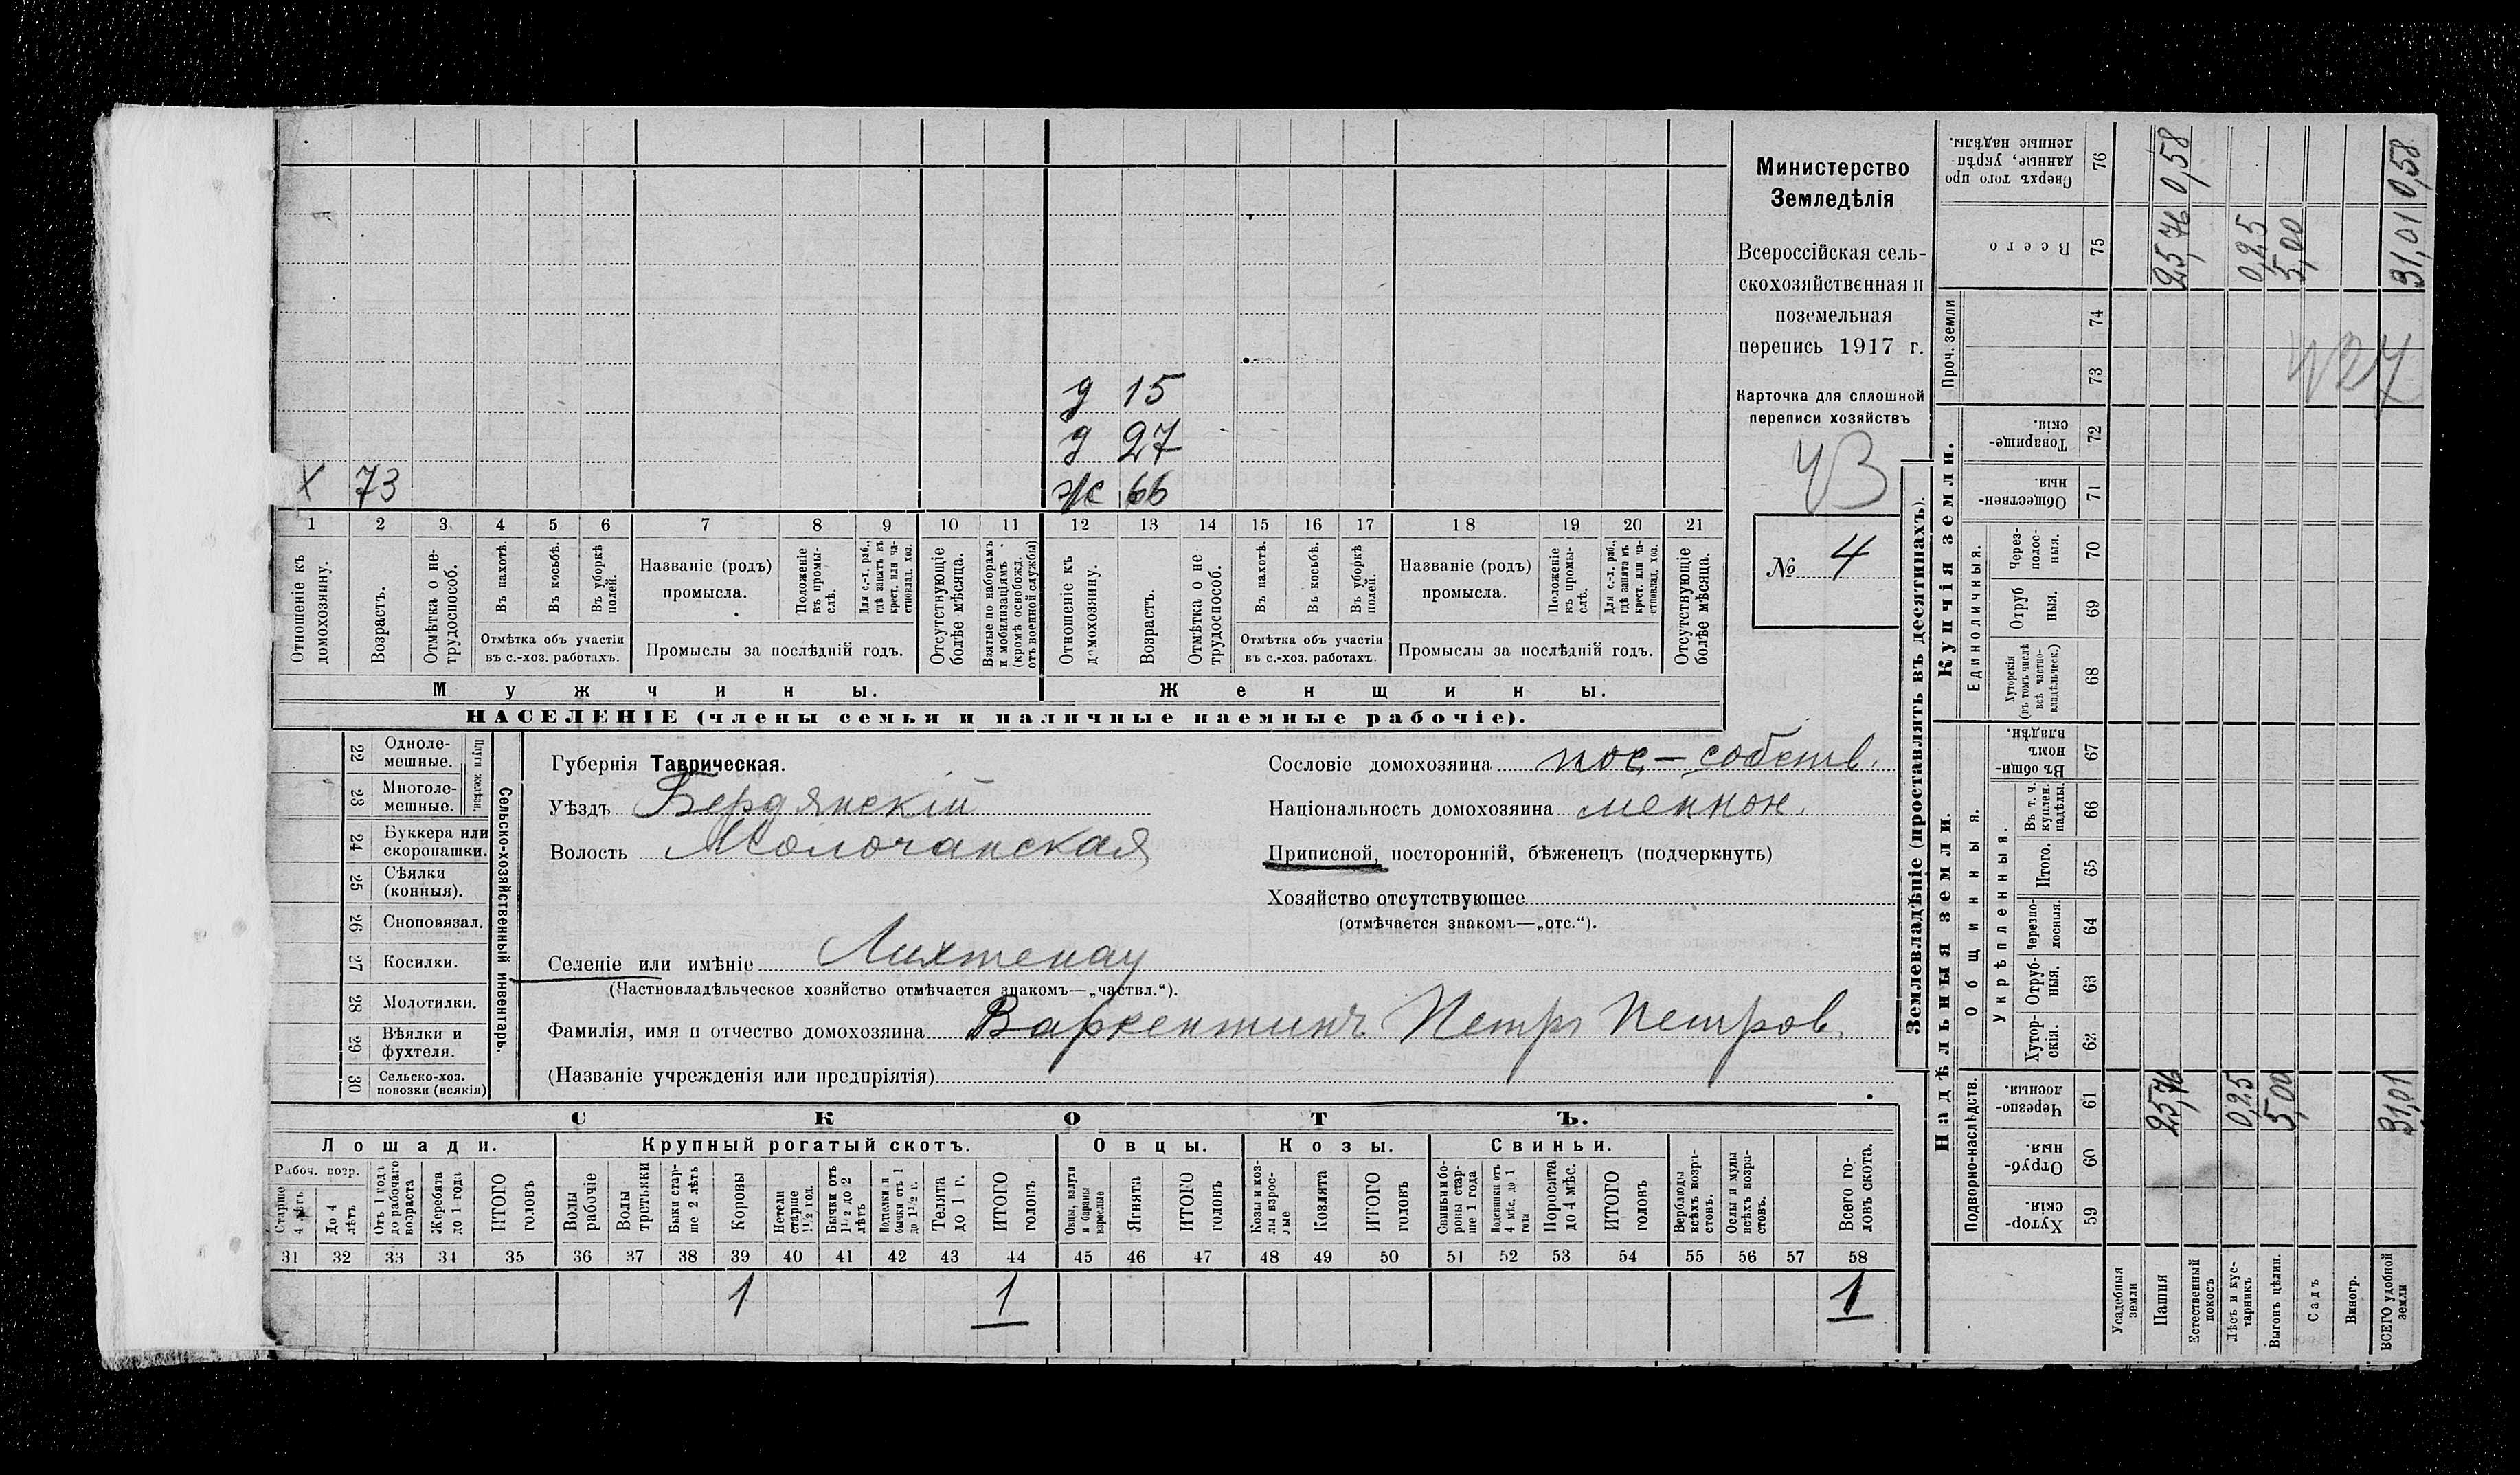 Министерство
Земледѣлія
Всероссійская сель-
скохозяйственная и
поземельная
перепись 1917 г.
Карточка для сплошной
переписи хозяйствъ
43
№ 4
д 15
д 27
х 73
ж 66
1 2 3 4 5 6 7 8 9 10 11 12 13 14 15 16 17 18 19 20 21
Отношеніе къ домохозяину.
Возрастъ.
Отмѣтка о не-трудоспособ.
Въ пахотѣ.
Въ косьбѣ.
Въ уборкѣ полей.
Отмѣтка объ участіи
въ с.-хоз. работахъ.
Названіе (родъ)
промысла.
Положеніе въ промы-слѣ.
Для с.-х. раб., гдѣ занятъ въ крест. или ча-стновлад. хоз.
Промыслы за послѣдній годъ.
Отсутствующіе болѣе мѣсяца.
Взятые по наборамъ и мобилизаціямъ (кромѣ освобожд. отъ военной службы)
Отношеніе къ домохозяину.
Возрастъ.
Отмѣтка о не трудоспособ.
Въ пахотѣ.
Въ косьбѣ.
Въ уборкѣ полей.
Отмѣтка объ участіи
въ с.-хоз. работахъ.
Названіе (родъ)
промысла.
Положеніе въ промы-слѣ.
Для с.-х. раб., гдѣ занята въ крест. или ча-стновлад. хоз.
Промыслы за послѣдній годъ.
Отсутствующіе болѣе мѣсяца.
Мужчины. Женщины.
НАСЕЛЕНІЕ (члены семьи и наличные наемные рабочіе).
22 Одноле-мешные.
23 Многоле-мешные.
Плуги желѣзн.
24 Буккера или скоропашки.
25 Сѣялки (конныя).
26 Сноповязал.
27 Косилки.
28 Молотилки.
29 Вѣялки и фухтеля.
30 Сельско-хоз. повозки (всякія)
Сельско-хозяйственный инвентарь.
Губернія Таврическая.
Уѣздъ Бердянскій
Волость Молочанская
Сословіе домохозяина пос.-собств.
Національность домохозяина меннон.
Приписной, посторонній, бѣженецъ (подчеркнуть)
Хозяйство отсутствующее
(отмѣчается знакомъ—„отс.“).
Селеніе или имѣніе Лихтенау
(Частновладѣльческое хозяйство отмѣчается знакомъ—„частвл.“).
Фамилія, имя и отчество домохозяина Варкентинъ Петръ Петров.
(Названіе учрежденія или предпріятія)
СКОТЪ.
Лошади. Крупный рогатый скотъ. Овцы. Козы. Свиньи.
Рабоч. возр.
Старше 4 лѣтъ
До 4 лѣтъ
Отъ 1 года до рабочаго возраста
Жеребята до 1 года
ИТОГО головъ
Волы рабочіе
Волы третьяки
Быки стар-ше 2 лѣтъ
Коровы
Нетели старше 1½ год.
Бычки отъ 1½ до 2 лѣтъ
Телята до 1 г.
ИТОГО головъ
Овцы, валухи и бараны взрослые
Ягнята
ИТОГО головъ
Козы и коз-лы взрос-лые
Козлята
ИТОГО головъ
Свиньи и бо-роны стар-ше 1 года
Подсвинки отъ 4 мѣс. до 1 года
Поросята до 4 мѣс.
ИТОГО головъ
Верблюды всѣхъ возра-стовъ.
Ослы и мулы всѣхъ возра-стовъ.
Всего го-ловъ скота.
31 32 33 34 35 36 37 38 39 40 41 42 43 44 45 46 47 48 49 50 51 52 53 54 55 56 57 58
1 1 1
Землевладѣніе (проставлять въ десятинахъ).
Надѣльныя земли. Купчія земли.
Проч. земли
Подворно-наслѣдств.
Общинныя.
Укрѣпленныя.
Единоличныя.
Сверхъ того про данные, укрѣп-ленные надѣлы. 76
Всего 75
74
73
Товарище-скія. 72
Обществен-ныя. 71
Через-полос-ныя. 70
Отруб ныя. 69
Хуторскія (въ томъ числѣ всѣ частно-владѣльческ.) 68
Въ общин-номъ владѣн. 67
Въ т. ч. куплен. надѣлы. 66
Итого. 65
Черезпо-лосныя. 64
Отруб-ныя. 63
Хутор-скія. 62
Черезпо-лосныя. 61
Отруб-ныя. 60
Хутор-скія. 59
Усадебныя земли
Пашня 25,76 25,76 0,58
Естественный покосъ
Лѣсъ и кус-тарникъ 0,25 0,25
Выгонъ цѣлин. 5,00 5,00
Садъ
Виногр.
ВСЕГО удобной земли 31,01 31,01 0,58
427